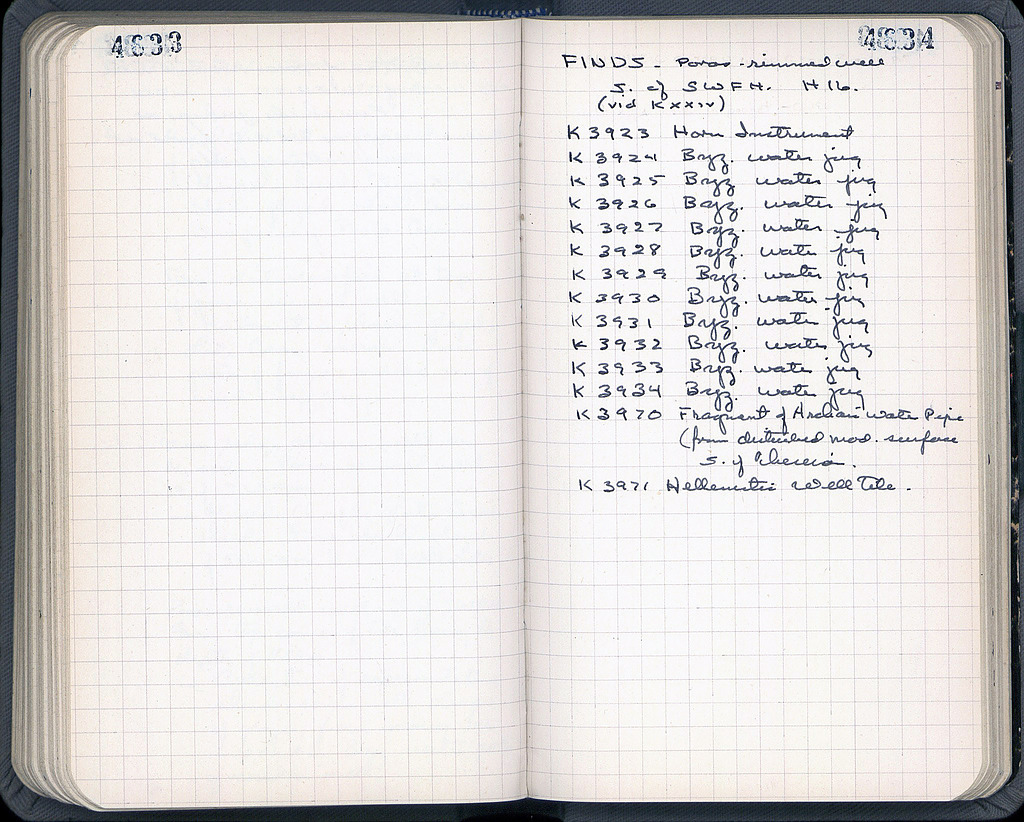 4633
4634
FINDS - Poros-rimmed well
S. of SWFH. H 16.
(vid K xxiv)
K 3923 Horn Instrument
K 3924 Byz. water jug
K 3925 Byz water jug
K 3926 Byz. water jug
K 3927 Byz. water jug
K 3928 Byz. water jug
K 3929 Byz. water jug
K 3930 Byz. water jug
K 3931 Byz. water jug
K 3932 Byz. water jug
K 3933 Byz. water jug
K 3934 Byz. water jug
K 3970 Fragment of Archaic water Pipe
(from disturbed mod. surface
S. of
K 3971 Hellenistic Well Tile.